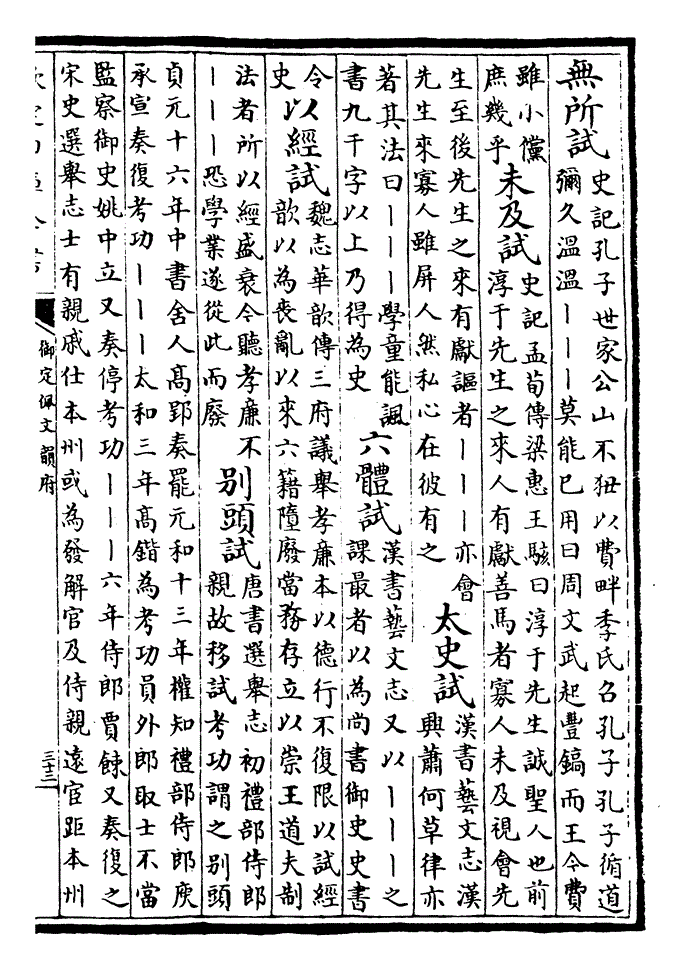 無所試
史記孔子世家公山不狃以費畔季氏召孔子孔子循道
彌久溫溫丨丨丨莫能已用曰周文武起豐鎬而王今費
雖小儻
庶幾乎
未及試
史記孟荀傳梁惠王駭曰淳于先生誠聖人也前
淳于先生之來人有獻善馬者寡人未及視會先
生至後先生之來有獻謳者丨丨丨亦會
先生來寡人雖屏人然私心在彼有之
太史試
漢書藝文志漢
興蕭何草律亦
著其法曰丨丨丨學童能諷
書九千字以上乃得為史
六體試
漢書藝文志又以丨丨丨之
課最者以為尚書御史史書
令
史
以經試
魏志華歆傳三府議舉孝廉本以德行不復限以試經
歆以為喪亂以來六籍隳廢當務存立以崇王道夫制
法者所以經盛衰今聽孝廉不
丨丨丨恐學業遂從此而廢
别頭試
唐書選舉志初禮部侍郎
親故移試考功謂之别頭
貞元十六年中書舍人高郢奏罷元和十三年權知禮部侍郎庾
承宣奏復考功丨丨丨太和三年高鍇為考功員外郎取士不當
監察御史姚中立又奏停考功丨丨丨六年侍郎賈餗又奏復之
宋史選舉志士有親戚仕本州或為發解官及侍親遠官距本州
欽定四庫全書
御定佩文韻府
三十三